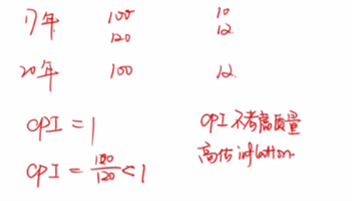 17年 100 10
120 12
20年 100 12
CPI = 1 CPI 不考虑质量
高估 inflation.
CPI = 100/120 < 1